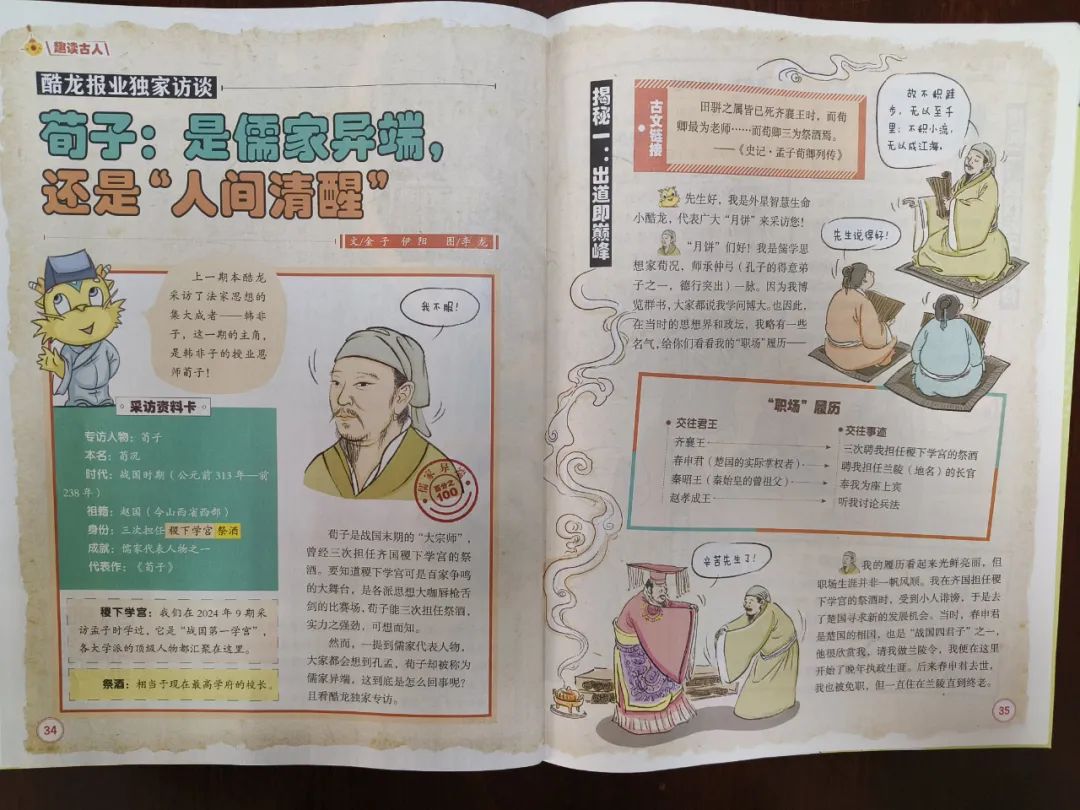 趣读古人
酷龙报业独家访谈
荀子：是儒家异端，
还是“人间清醒”
文/金子 伊阳 图/李龙
上一期本酷龙
采访了法家思想的
集大成者——韩非
子，这一期的主角，
是韩非子的授业恩
师荀子！
我不服！
采访资料卡
专访人物：荀子
本名：荀况
时代：战国时期（公元前313年—前
238年）
祖籍：赵国（今山西省西部）
身份：三次担任稷下学宫祭酒
成就：儒家代表人物之一
代表作：《荀子》
儒家异端
百分之
100
稷下学宫：我们在2024年9期采
访孟子时学过，它是“战国第一学宫”，
各大学派的顶级人物都汇聚在这里。
祭酒：相当于现在最高学府的校长。
荀子是战国末期的“大宗师”，
曾经三次担任齐国稷下学宫的祭
酒。要知道稷下学宫可是百家争鸣
的大舞台，是各派思想大咖唇枪舌
剑的比赛场，荀子能三次担任祭酒，
实力之强劲，可想而知。
然而，一提到儒家代表人物，
大家都会想到孔孟，荀子却被称为
儒家异端，这到底是怎么回事呢？
且看酷龙独家专访。
34
揭秘一：出道即巅峰
古文链接
田骈之属皆已死齐襄王时，而荀
卿最为老师……而荀卿三为祭酒焉。
——《史记·孟子荀卿列传》
故不积跬
步，无以至千
里；不积小流，
无以成江海。
先生说得好！
先生好，我是外星智慧生命
小酷龙，代表广大“月饼”来采访您！
“月饼”们好！我是儒学思
想家荀况，师承仲弓（孔子的得意弟
子之一，德行突出）一脉。因为我博
览群书，大家都说我学问博大。也因此，
在当时的思想界和政坛，我略有一些
名气，给你们看看我的“职场”履历——
“职场”履历
交往君王
交往事迹
齐襄王
三次聘我担任稷下学宫的祭酒
春申君（楚国的实际掌权者）
聘我担任兰陵（地名）的长官
秦昭王（秦始皇的曾祖父）
奉我为座上宾
赵孝成王
听我讨论兵法
辛苦先生了！
我的履历看起来光鲜亮丽，但
职场生涯并非一帆风顺。我在齐国担任稷
下学宫的祭酒时，受到小人诽谤，于是去
了楚国寻求新的发展机会。当时，春申君
是楚国的相国，也是“战国四君子”之一，
他很欣赏我，请我做兰陵令，我便在这里
开始了晚年执政生涯。后来春申君去世，
我也被免职，但一直住在兰陵直到终老。
35